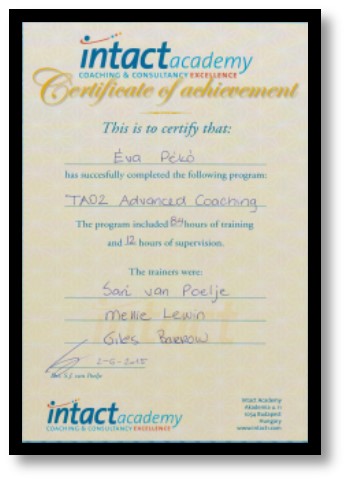 intact academy
COACHING & CONSULTANCY EXCELLENCE
Certificate of achievement
This is to certify that:
Éva Pékó
has succesfully completed the following program:
TA02 Advanced Coaching
The program included 84 hours of training
and 12 hours of supervision.
The trainers were:
Sari van Poelje
Mellie Lewin
Giles Barrow
2-6-2015
S.J. van Poelje
intact academy
COACHING & CONSULTANCY EXCELLENCE
Intact Academy
Hungary